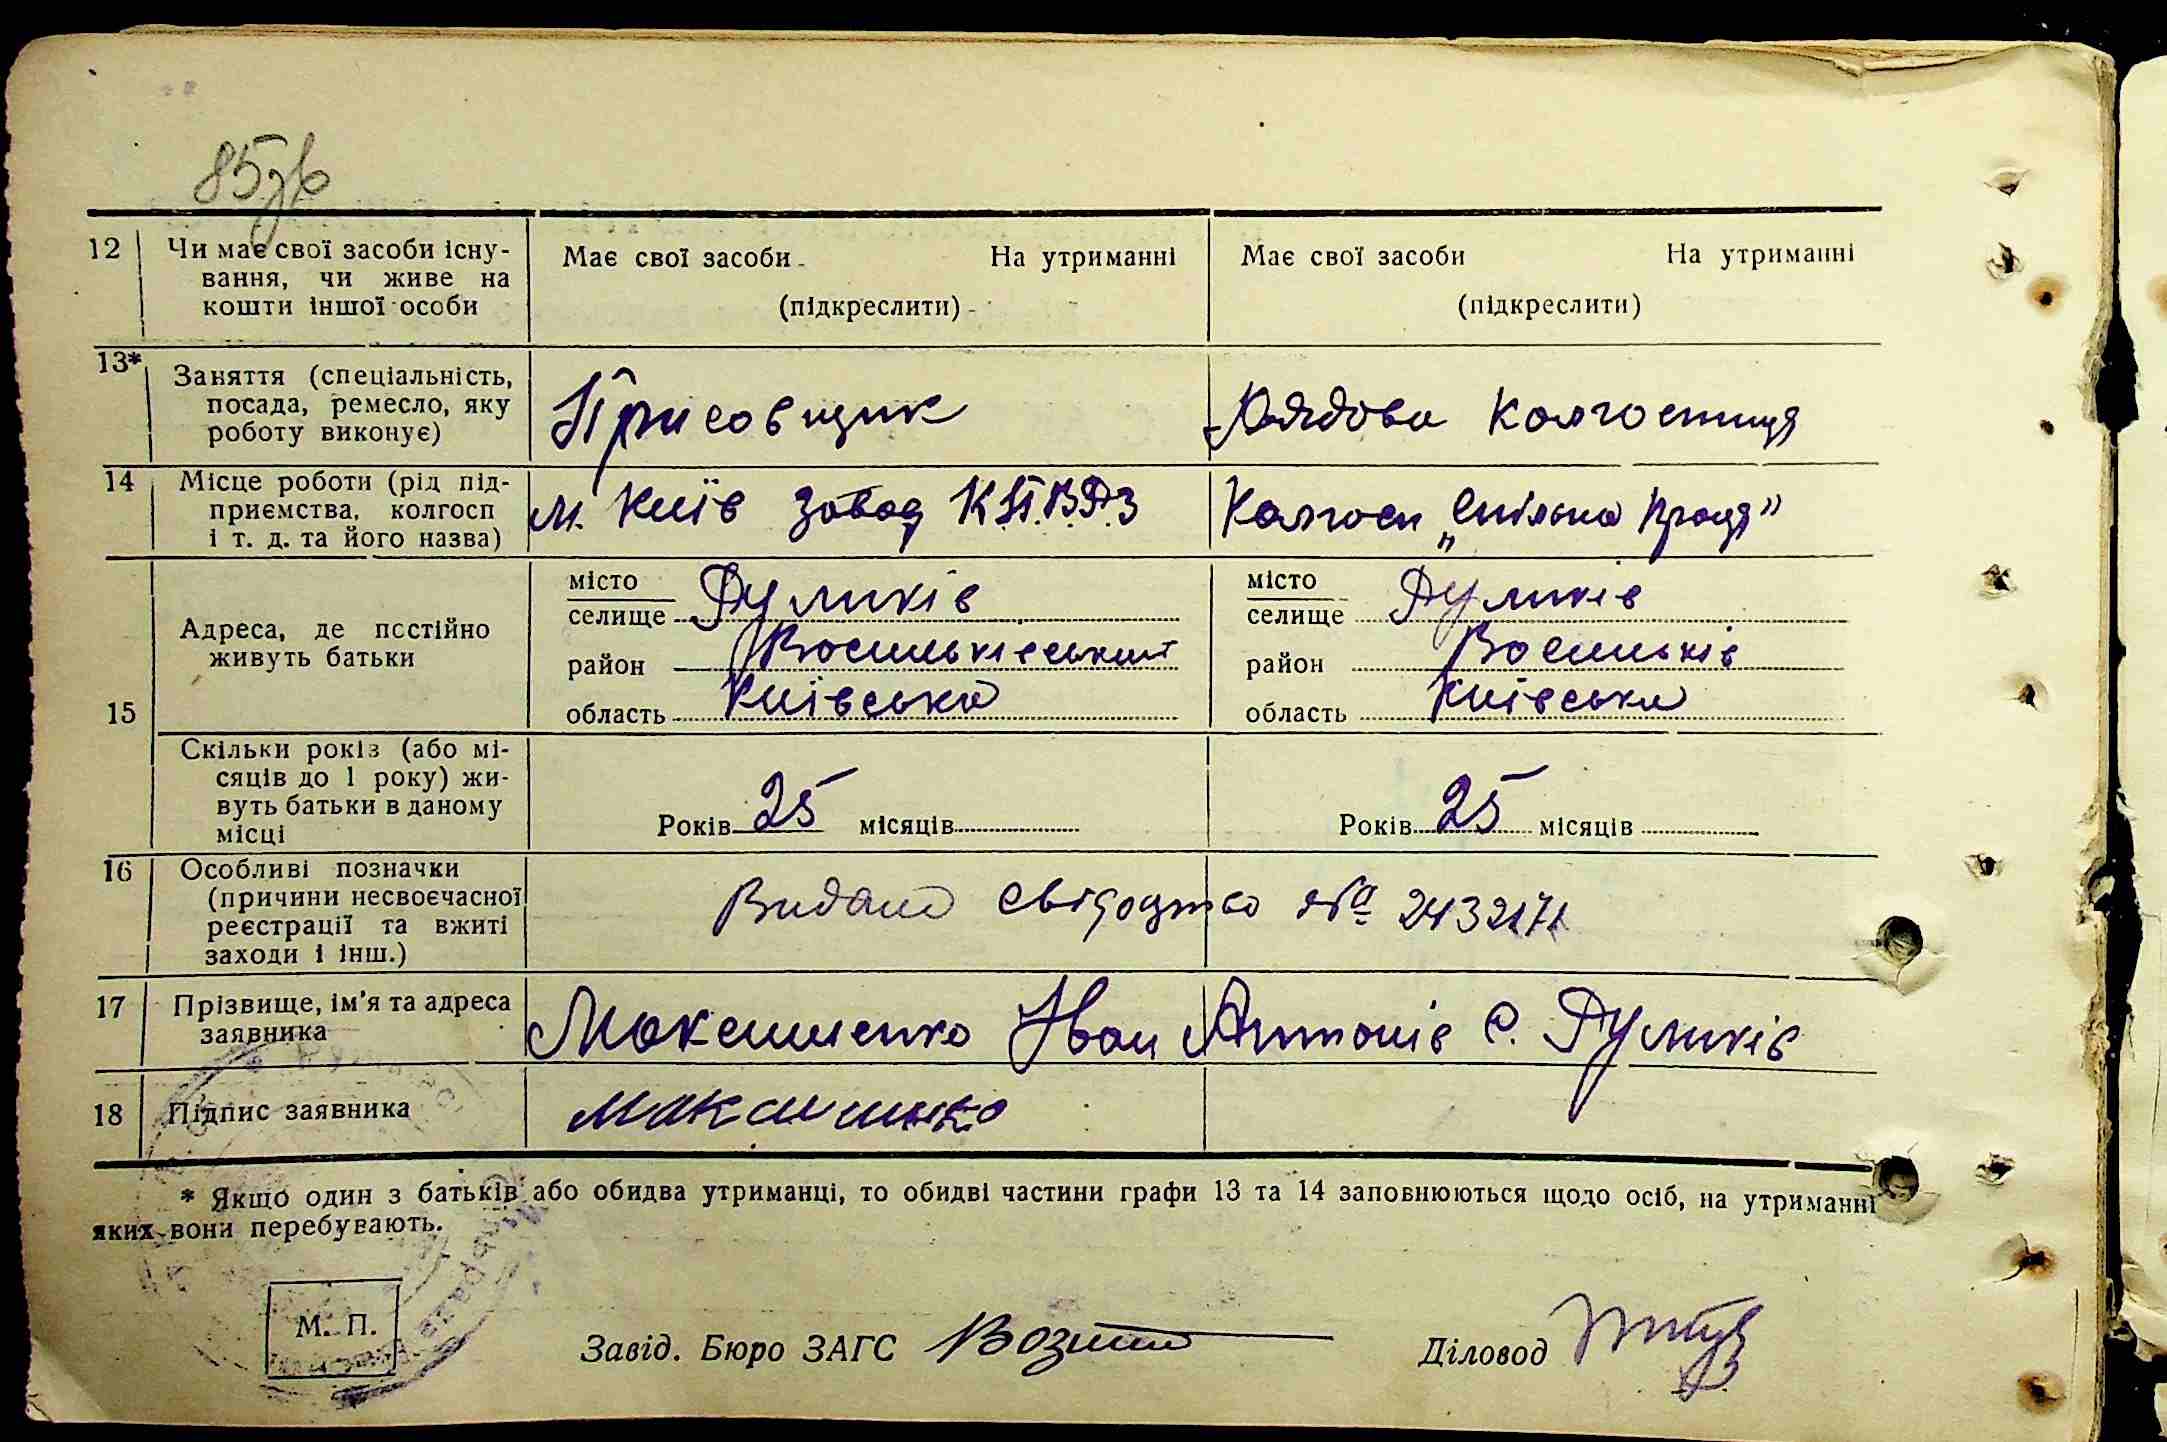 85 зв
12 Чи має свої засоби існу- Має свої засоби На утриманні Має свої засоби На утриманні
вання, чи живе на
кошти іншої особи (підкреслити) (підкреслити)
13* Заняття (спеціальність,
посада, ремесло, яку Присовщик Рядова колгоспниця
роботу виконує)
14 Місце роботи (рід під-
приємства, колгосп м. Київ завод Колгосп „Спільна праця”
і т. д. та його назва)
15 Адреса, де постійно
живуть батьки
місто
селище Дуликів
район Васильківський
область Київська
місто
селище Дуликів
район Васильків
область Київська
Скільки років (або мі-
сяців до 1 року) жи-
вуть батьки в даному
місці
Років 25 місяців Років 25 місяців
16 Особливі позначки
(причини несвоєчасної Видано свідоцтво № 243217
реєстрації та вжиті
заходи і інш.)
17 Прізвище, ім’я та адреса
заявника Максименко Іван Антонів с. Дуликів
18 Підпис заявника Максименко
* Якщо один з батьків або обидва утриманці, то обидві частини графи 13 та 14 заповнюються щодо осіб, на утриманні
яких вони перебувають.
М. П.
Завід. Бюро ЗАГС Діловод